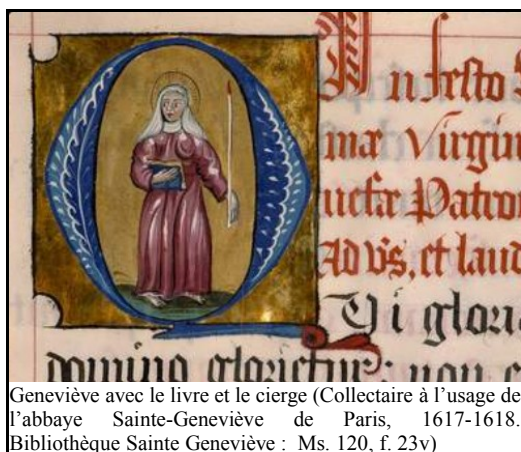 In festo
mæ Virgin
uefæ Patron
AD Vs, et laud
QVi gloria
domino glorietur: non e
Geneviève avec le livre et le cierge (Collectaire à l’usage de
l’abbaye Sainte-Geneviève de Paris, 1617-1618.
Bibliothèque Sainte Geneviève : Ms. 120, f. 23v)